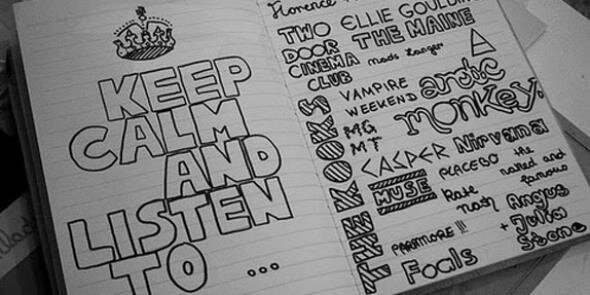 KEEP
CALM
AND
LISTEN
TO ...
Florence
TWO
DOOR
CINEMA
CLUB
ELLIE GOULDING
THE MAINE
Mads Langer
THE KOOKS
VAMPIRE
WEEKEND
arctic
monkeys
MG
MT
CASPER
Nirvana
MUSE
PLACEBO
the
naked and
famous
Kate
Nash
Angus
+ Julia
Stone
PARAMORE !!!
Foals